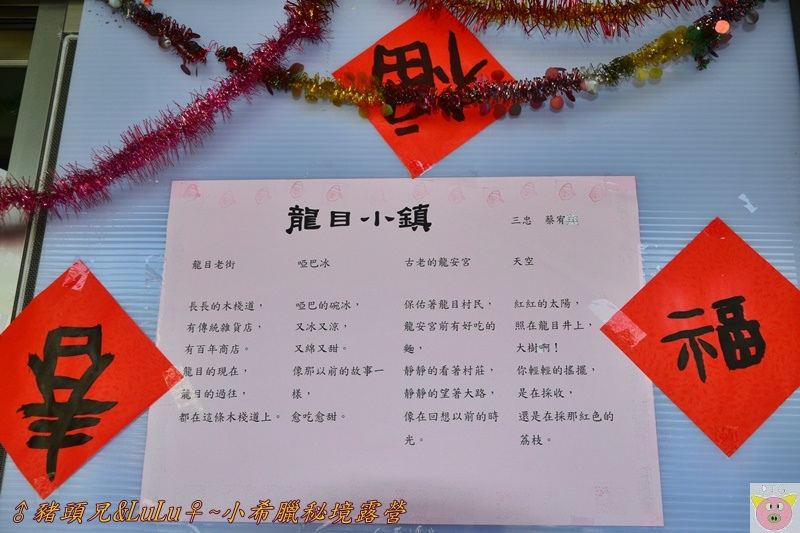 福
龍目小鎮
三忠 蔡宥
龍目老街
長長的木棧道，
有傳統雜貨店，
有百年商店。
龍目的現在，
龍目的過往，
都在這條木棧道上。
啞巴冰
啞巴的碗冰，
又冰又涼，
又綿又甜。
像那以前的故事一
樣，
愈吃愈甜。
古老的龍安宮
保佑著龍目村民，
龍安宮前有好吃的
麵，
靜靜的看著村莊，
靜靜的望著大路，
像在回想以前的時
光。
天空
紅紅的太陽，
照在龍目井上，
大樹啊！
你輕輕的搖擺，
是在採收，
還是在採那紅色的
荔枝。
春
福
♂豬頭兄&LuLu♀~小希臘秘境露營